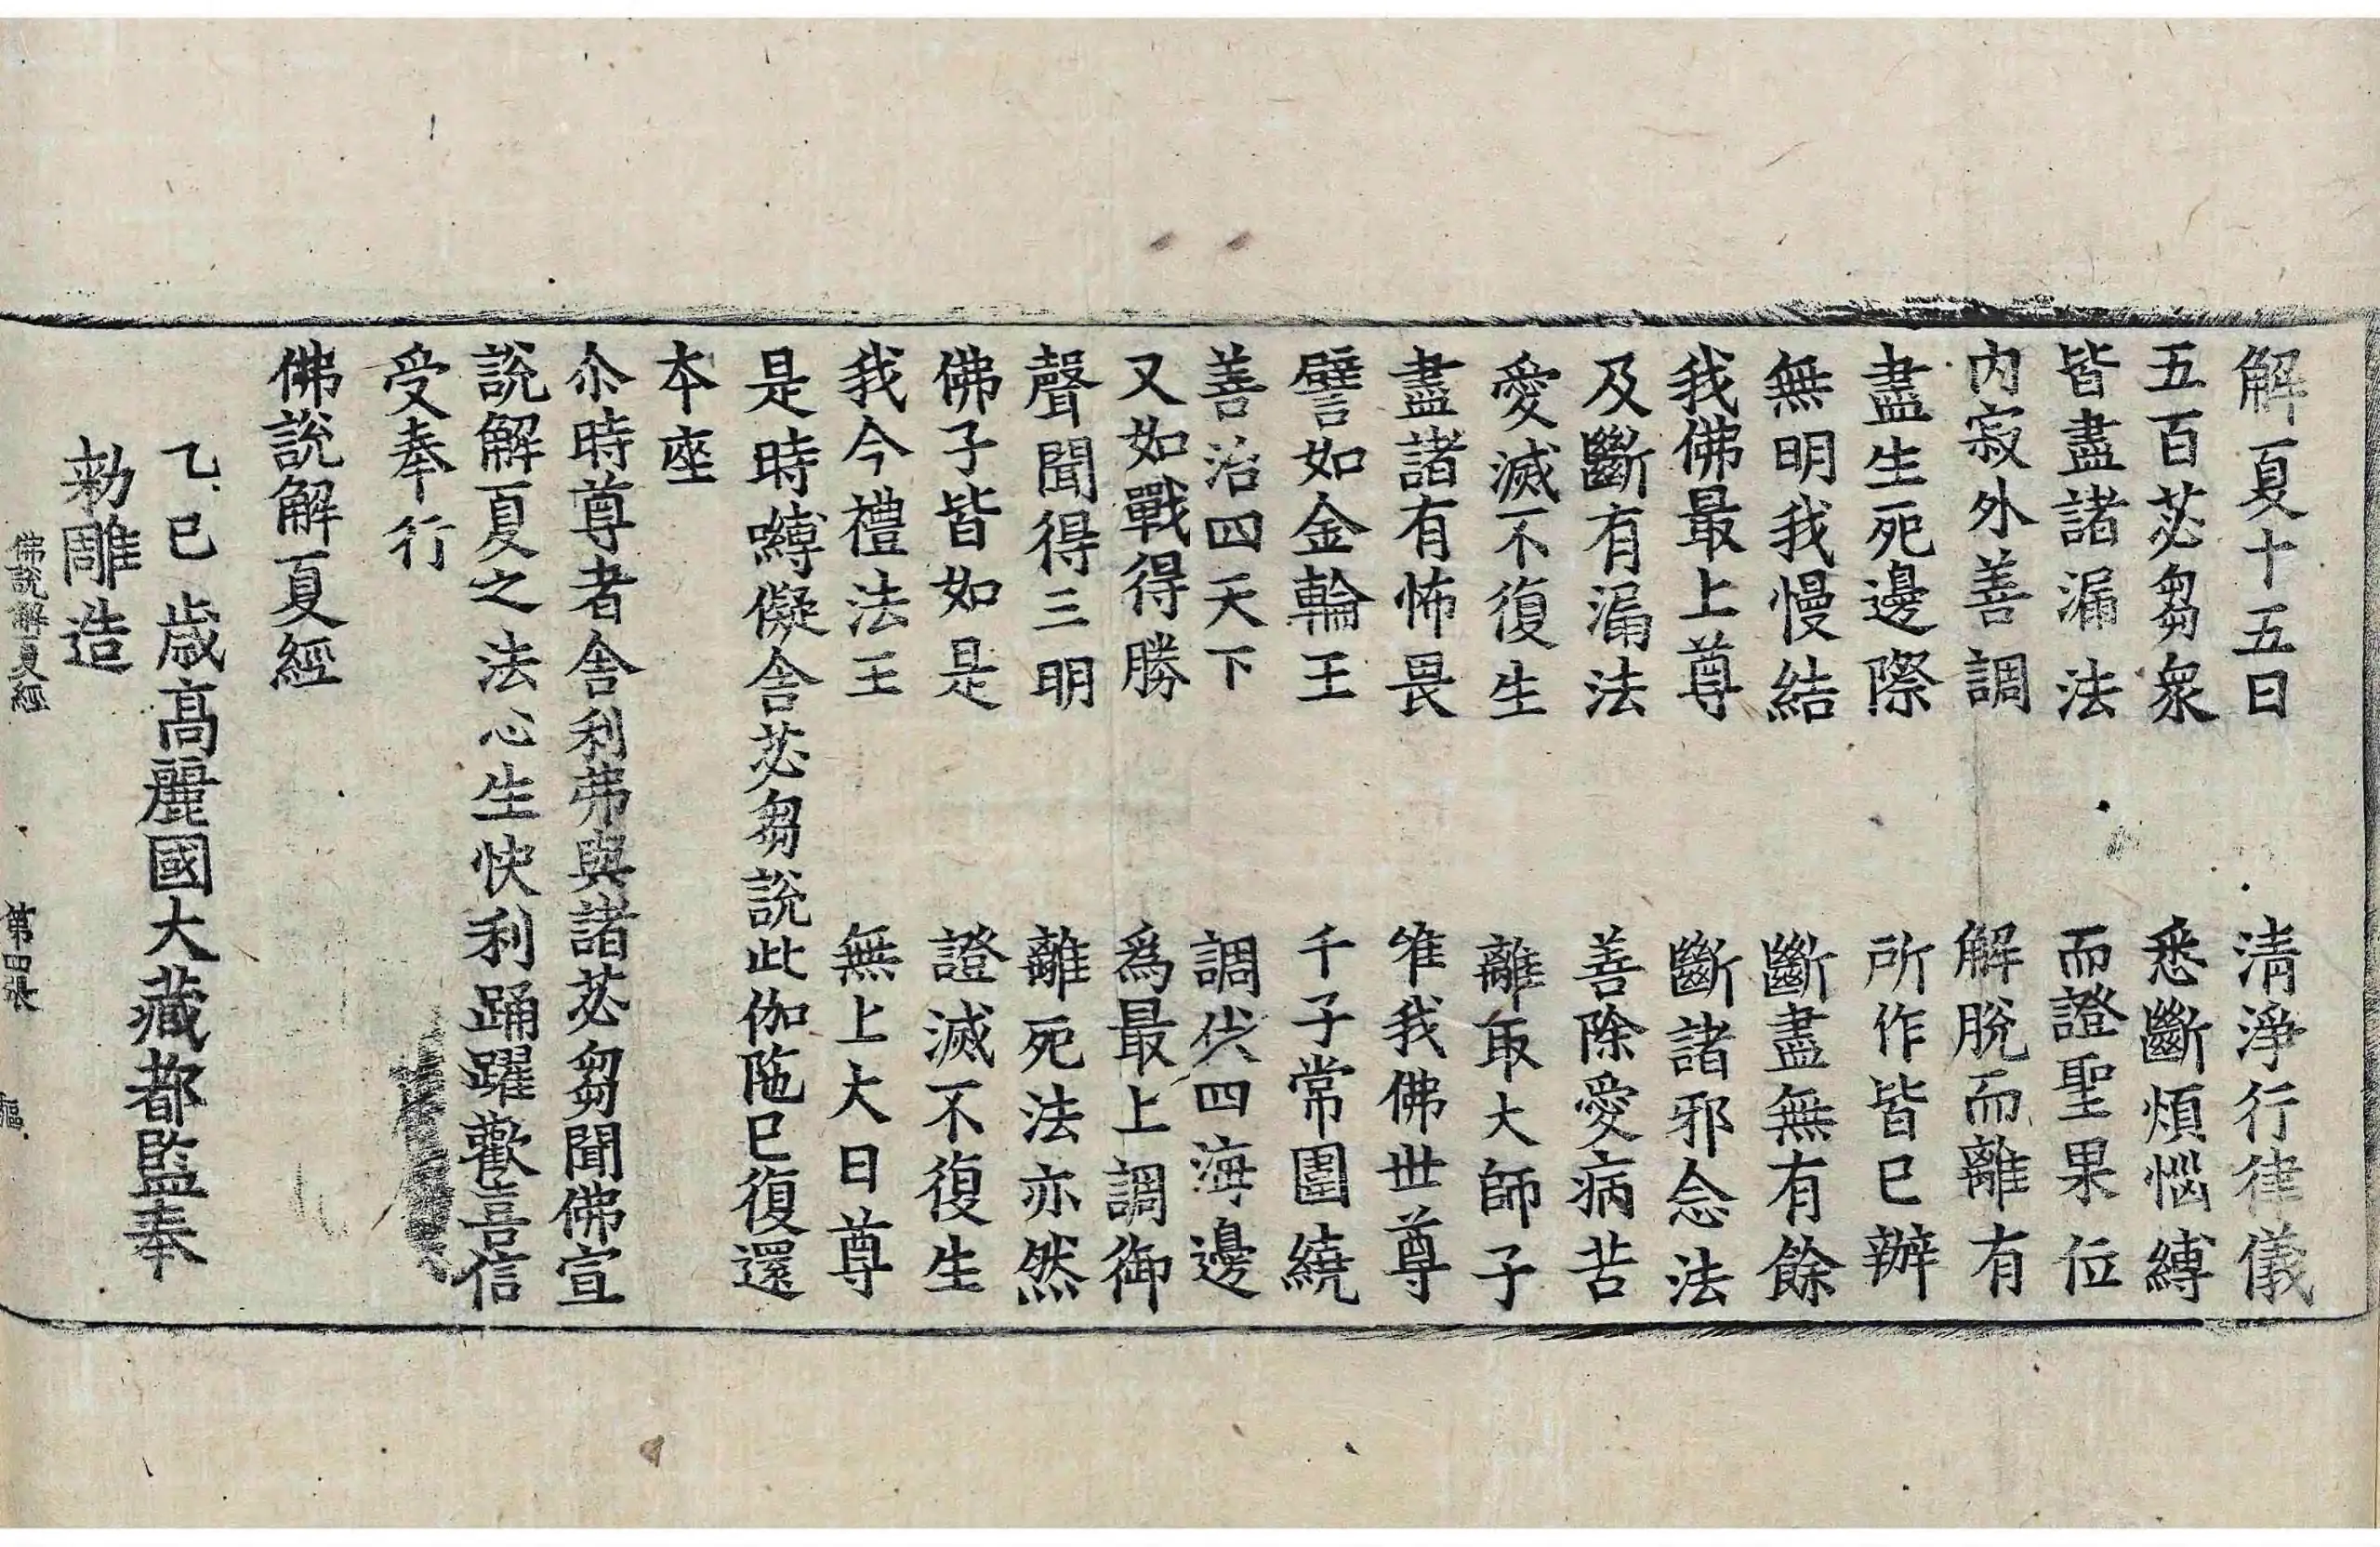 解夏十五日　清淨行律儀
五百苾芻衆　悉斷煩惱縛
皆盡諸漏法　而證聖果位
内寂外善調　解脫而離有
盡生死邊際　所作皆已辦
無明我慢結　斷盡無有餘
我佛最上尊　斷諸邪念法
及斷有漏法　善除愛病苦
愛滅不復生　離取大師子
盡諸有怖畏　唯我佛世尊
譬如金輪王　千子常圍繞
善治四天下　調伏四海邊
又如戰得勝　爲最上調御
聲聞得三明　離死法亦然
佛子皆如是　證滅不復生
我今禮法王　無上大日尊
是時嚩儗舍苾芻說此伽陁已復還
本座
尒時尊者舍利弗與諸苾芻聞佛宣
說解夏之法心生快利踊躍歡喜信
受奉行
佛說解夏經
乙巳歳高麗國大藏都監奉
勅雕造
佛說解夏經　第四張